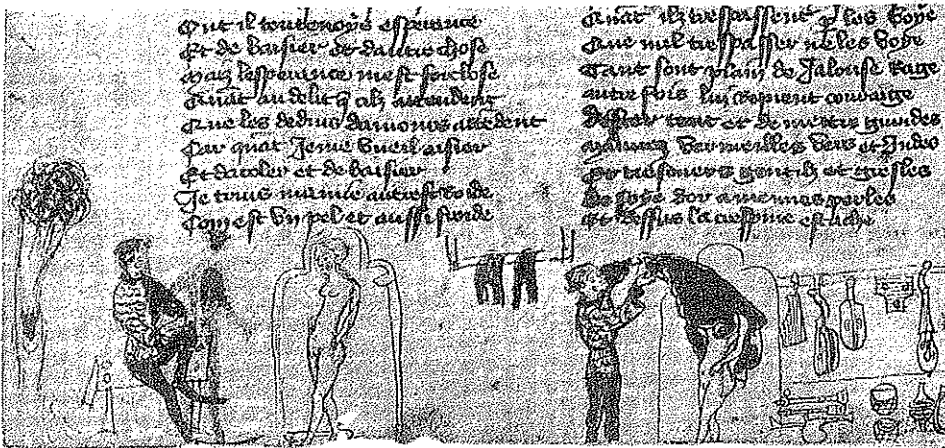 Ont il toutevoies esperance
Et de baisier et dautre chose
Maiz lesperance mest forclose
Quāt au delit q̄ cilz attendent
Que les deduis damours attēdent
Car quāt Je me vueil aisier
Et dacoler et de baisier
Je truis mamie autressi roide
Com est vn pel et aussi froide
Quāt ilz trespassent les voye
Que nul trespasser ne les voye
Tant sont plain de Jalouse Rage
autre fois lui reprent courage
Doster tout et de mettre guindes
Jaunes vermeilles vers et Indes
gentilz et gresles
De soye dor a menues perles
Et dessus la crespine estache